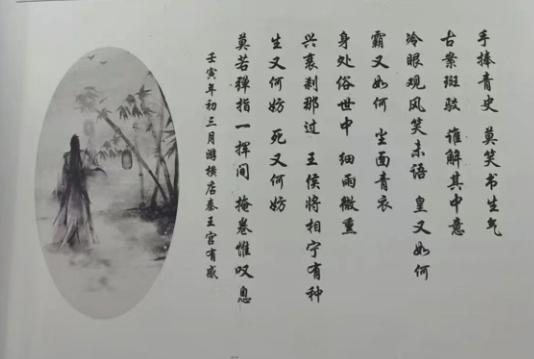 手捧青史 莫笑书生气
古案斑驳 谁解其中意
冷眼观风笑未语 皇又如何
霸又如何 尘面青衣
身处俗世中 细雨微熏
兴衰刹那过 王侯将相宁有种
生又何妨 死又何妨
莫若弹指一挥间 掩卷惟叹息
壬寅年初三月游横店秦王宫有感